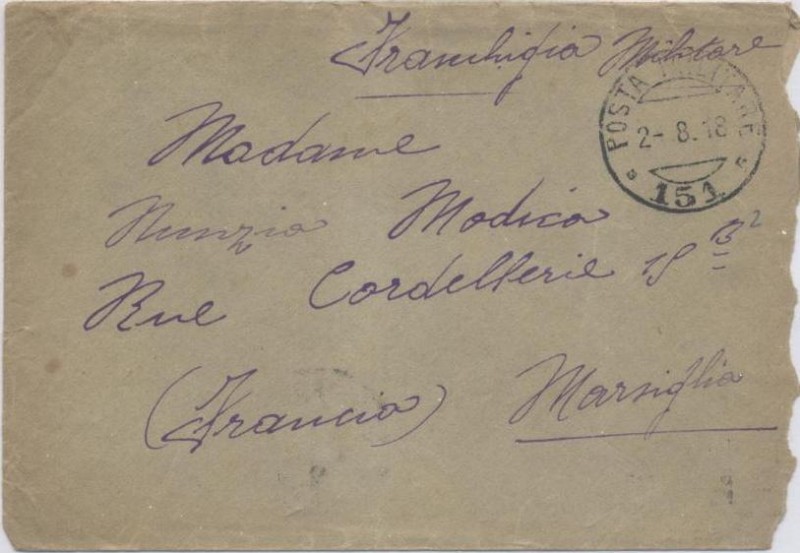 Franchigia Militare
POSTA MILITARE
2- 8. 18
151
Madame
Nunzia Modica
Rue Cordellerie 15 B²
(Francia) Marsiglia